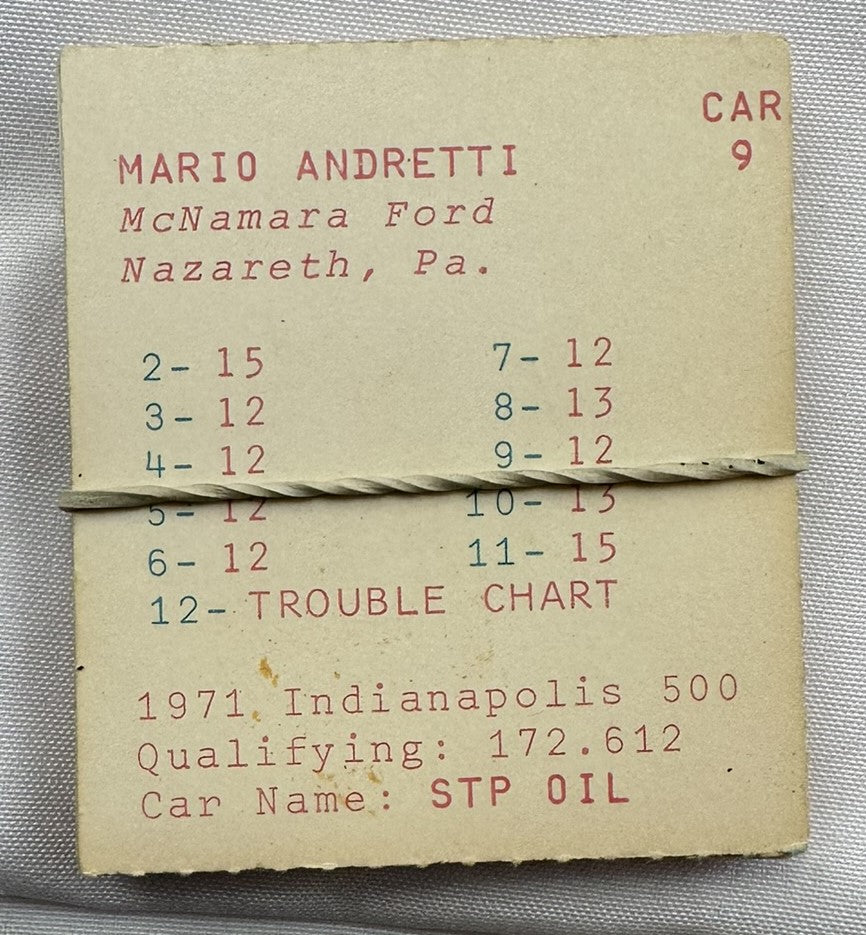 CAR
9
MARIO ANDRETTI
McNamara Ford
Nazareth, Pa.
2- 15 7- 12
3- 12 8- 13
4- 12 9- 12
5- 12 10- 13
6- 12 11- 15
12- TROUBLE CHART
1971 Indianapolis 500
Qualifying: 172.612
Car Name: STP OIL